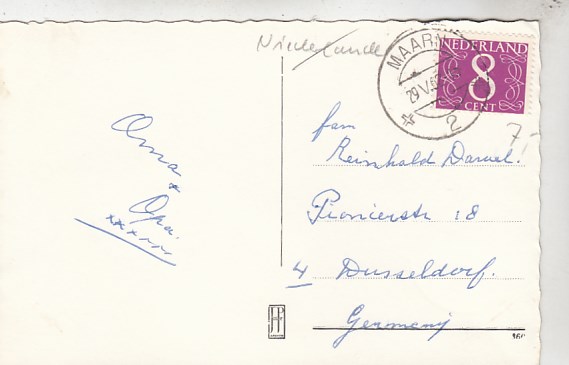 Niederlande
MAARN
29 V
2
NEDERLAND
8
CENT
7,-
Oma
+
Opa.
xxxxxx
fam
Reinhold Darvel.
Pionierstr 18
4 Dusseldorf.
Germany
JP